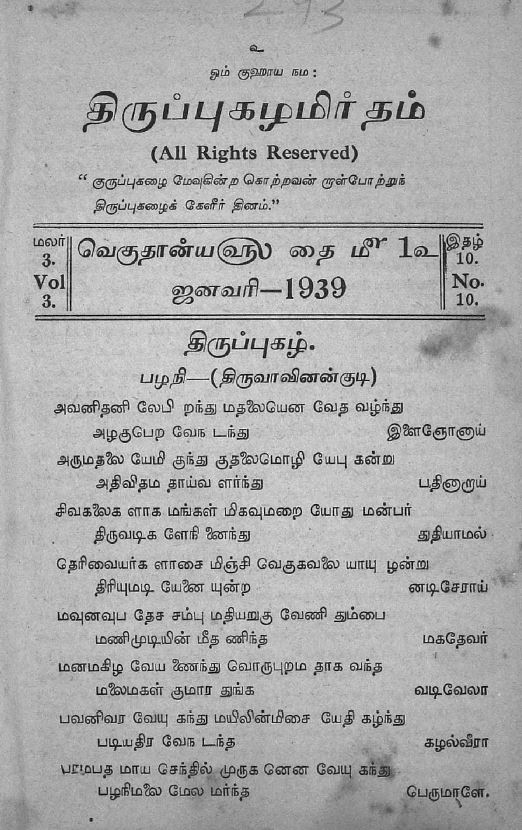 உ
ஓம் குஹாய நம :
திருப்புகழமிர்தம்
(All Rights Reserved)
“ குருப்புகழை மேவுகின்ற கொற்றவன் றாள்போற்றுந்
திருப்புகழைக் கேளீர் தினம்.”
மலர் 3. Vol 3.
வெகுதான்ய௵ தை ௴ 1உ
ஜனவரி—1939
இதழ் 10. No. 10.
திருப்புகழ்.
பழநி—(திருவாவினன்குடி)
அவனிதனி லேபி றந்து மதலையென வேத வழ்ந்து
அழகுபெற வேந டந்து இளைஞோனாய்
அருமதலை யேமி குந்து குதலைமொழி யேபு கன்று
அதிவிதம தாய்வ ளர்ந்து பதினாறாய்
சிவகலைக ளாக மங்கள் மிகவுமறை யோது மன்பர்
திருவடிக ளேநி னைந்து துதியாமல்
தெரிவையர்க ளாசை மிஞ்சி வெகுகவலை யாயு ழன்று
திரியுமடி யேனை யுன்ற னடிசேராய்
மவுனவுப தேச சம்பு மதியறுகு வேணி தும்பை
மணிமுடியின் மீத ணிந்த மகதேவர்
மனமகிழ வேய ணைந்து வொருபுறம தாக வந்த
மலைமகள் குமார துங்க வடிவேலா
பவனிவர வேயு கந்து மயிலின்மிசை யேதி கழ்ந்து
படியதிர வேந டந்த கழல்வீரா
பரமபத மாய செந்தில் முருக னென வேயு கந்து
பழநிமலை மேல மர்ந்த பெருமாளே.